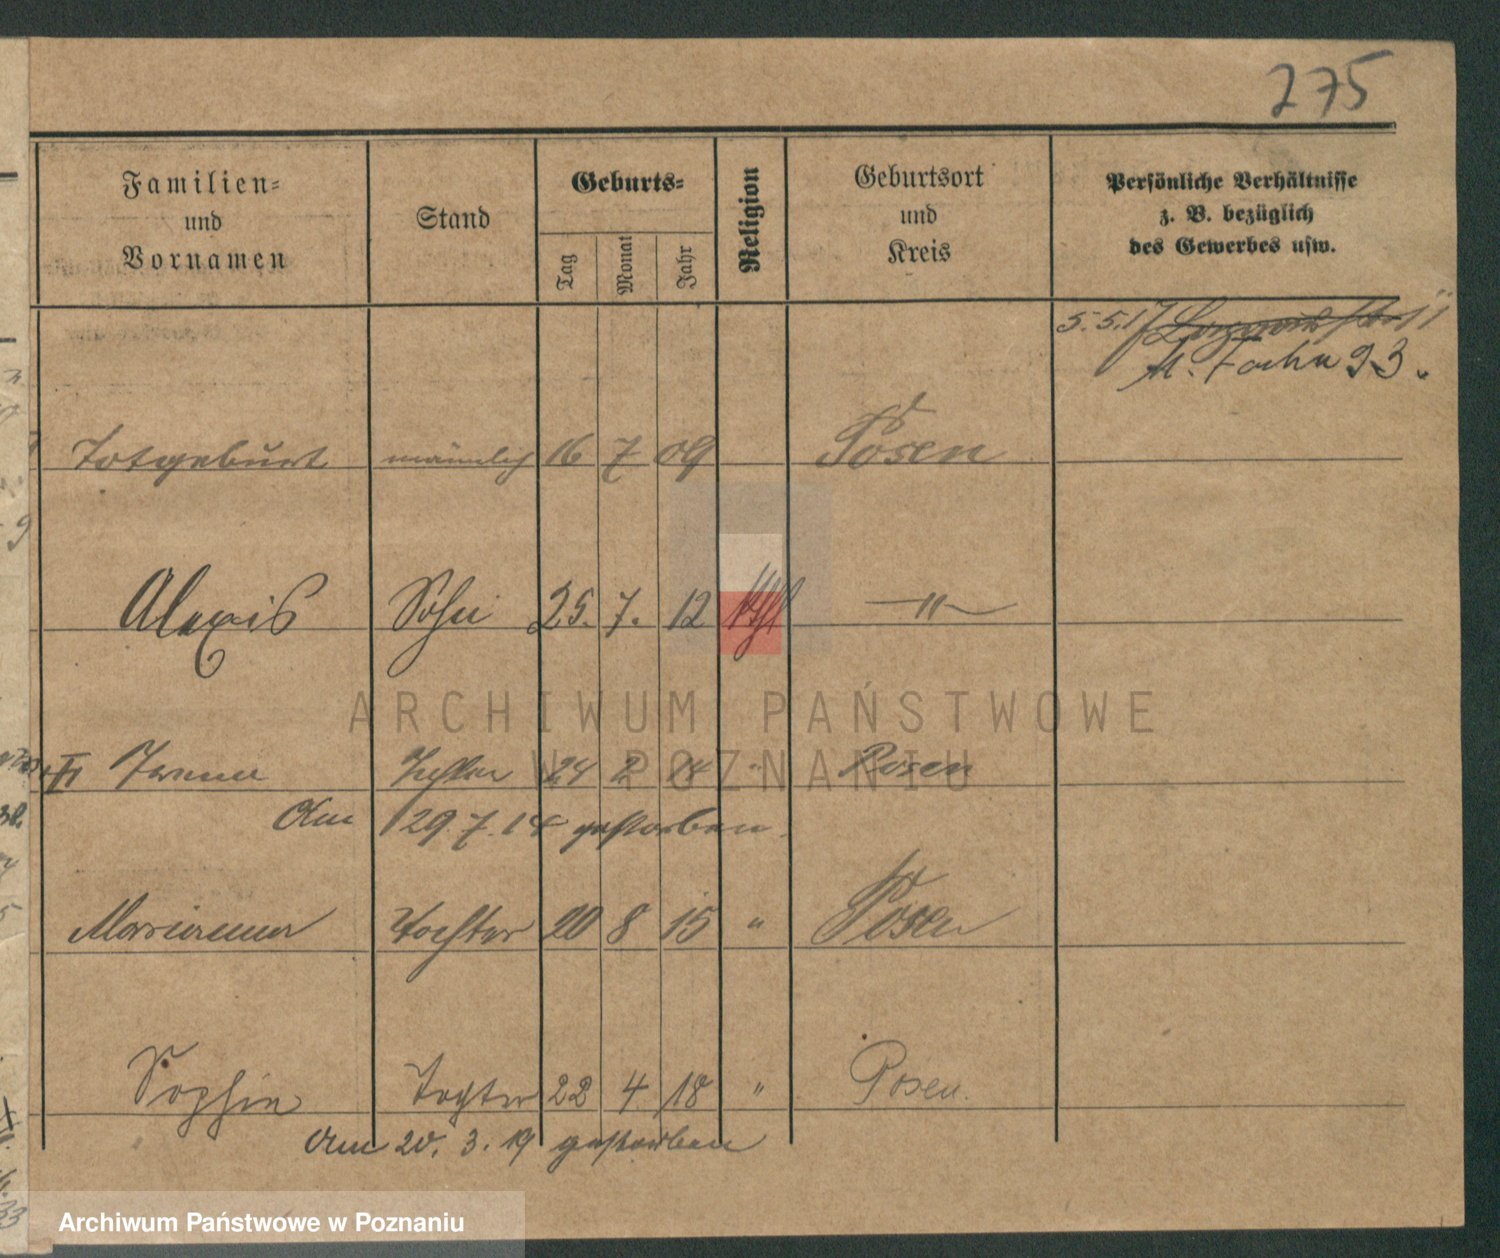 275
Familien-
und
Vornamen
Stand
Geburts-
Tag
Monat
Jahr
Religion
Geburtsort
und
Kreis
Persönliche Verhältnisse
z. B. bezüglich
des Gewerbes usw.
5.5.17
93.
Totgeburt männlich 16 7 09 Posen
Alexis Sohn 25. 7. 12 kath —"—
Irena Tochter 24 2 14 " Posen
Am 29.7.14 gestorben.
Marianna Tochter 20 8 15 " Posen
Sophie Tochter 22 4 18 " Posen.
Am 20. 3. 19 gestorben
ARCHIWUM PAŃSTWOWE
W POZNANIU
Archiwum Państwowe w Poznaniu